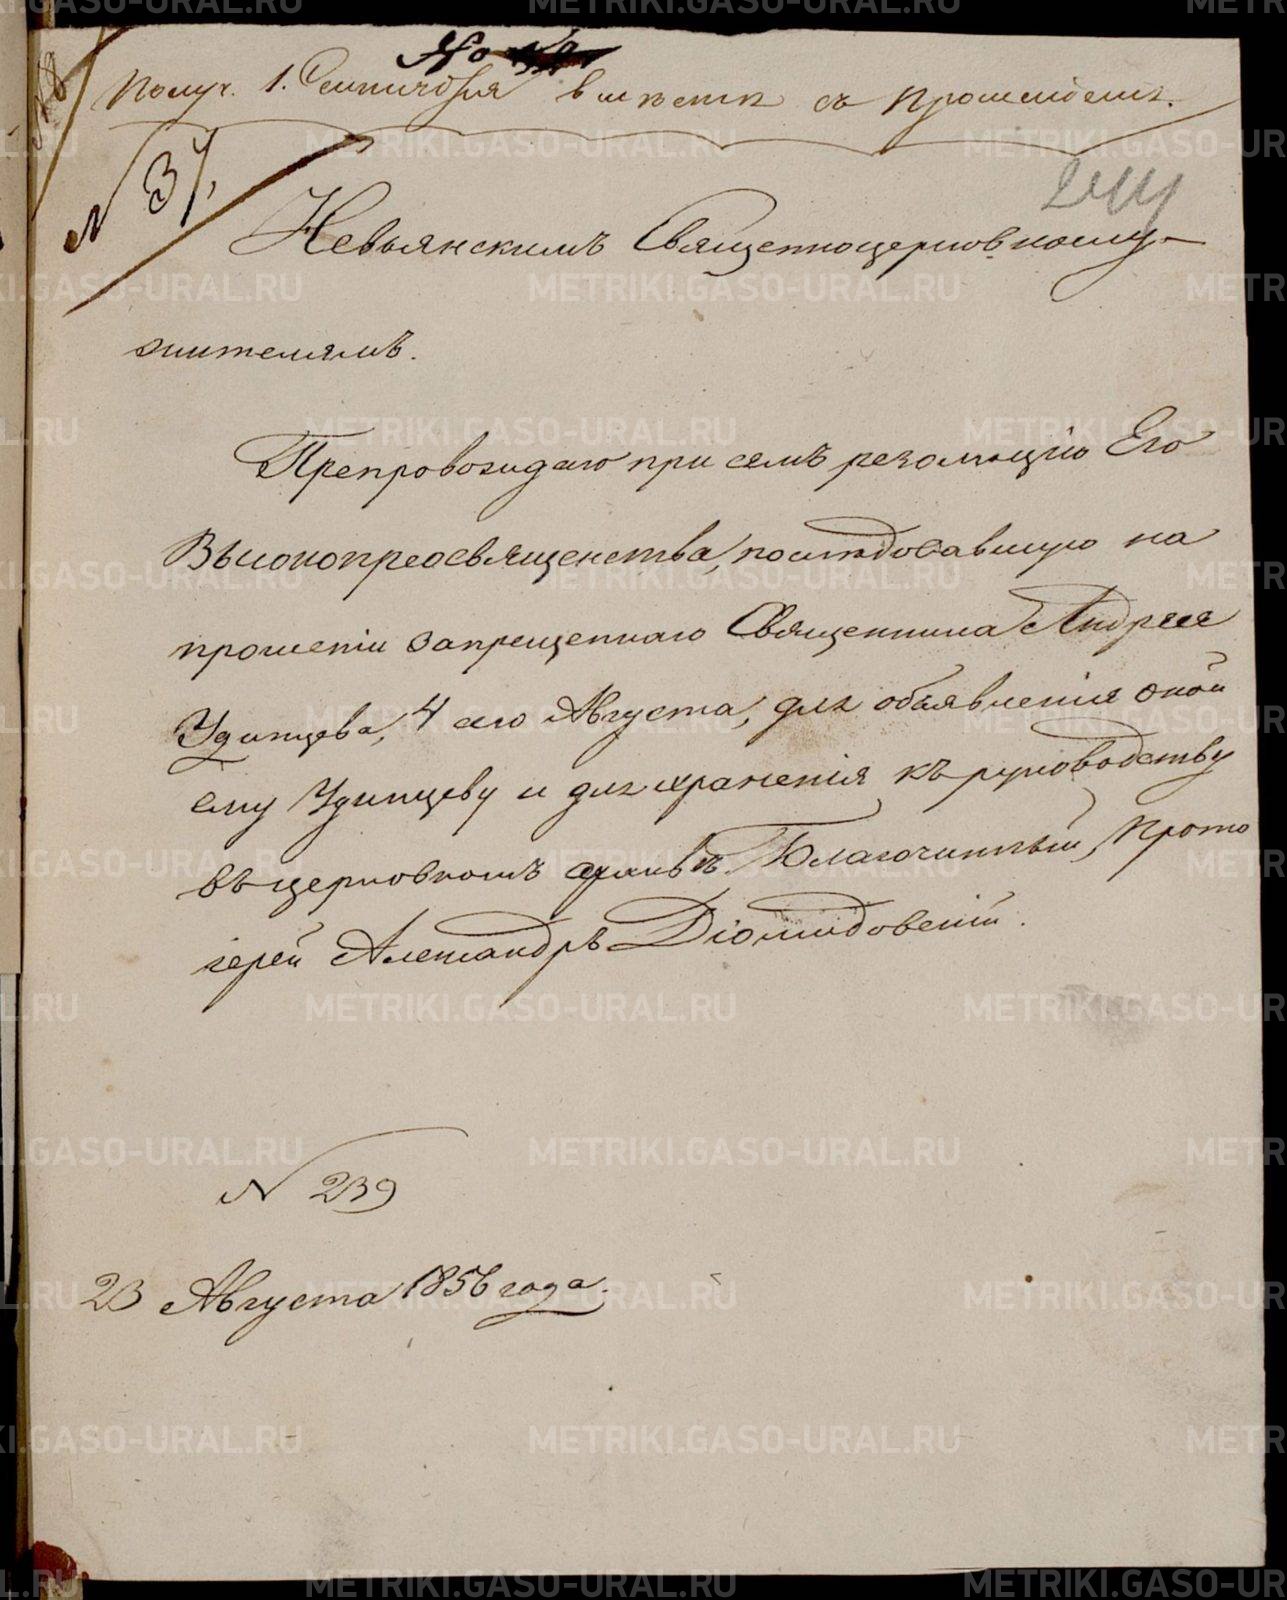 №
Получ. 1. Сентября вместе съ Прошеніемъ.
№ 37,
244
Невьянскимъ Священноцерковнослу-
жителямъ.
Препровождаю при семъ резолюцію Его
Высокопреосвященства, последовавшую на
прошеніи запрещеннаго Священника Андрея
Удинцева, 4 сего Августа, для объявленія оной
ему Удинцеву и для храненія къ руководству
въ церковномъ архивѣ. Благочинный, Прото
іерей Александръ Діомидовскій.
N 239
23 Августа 1856 года.
METRIKI.GASO-URAL.RU